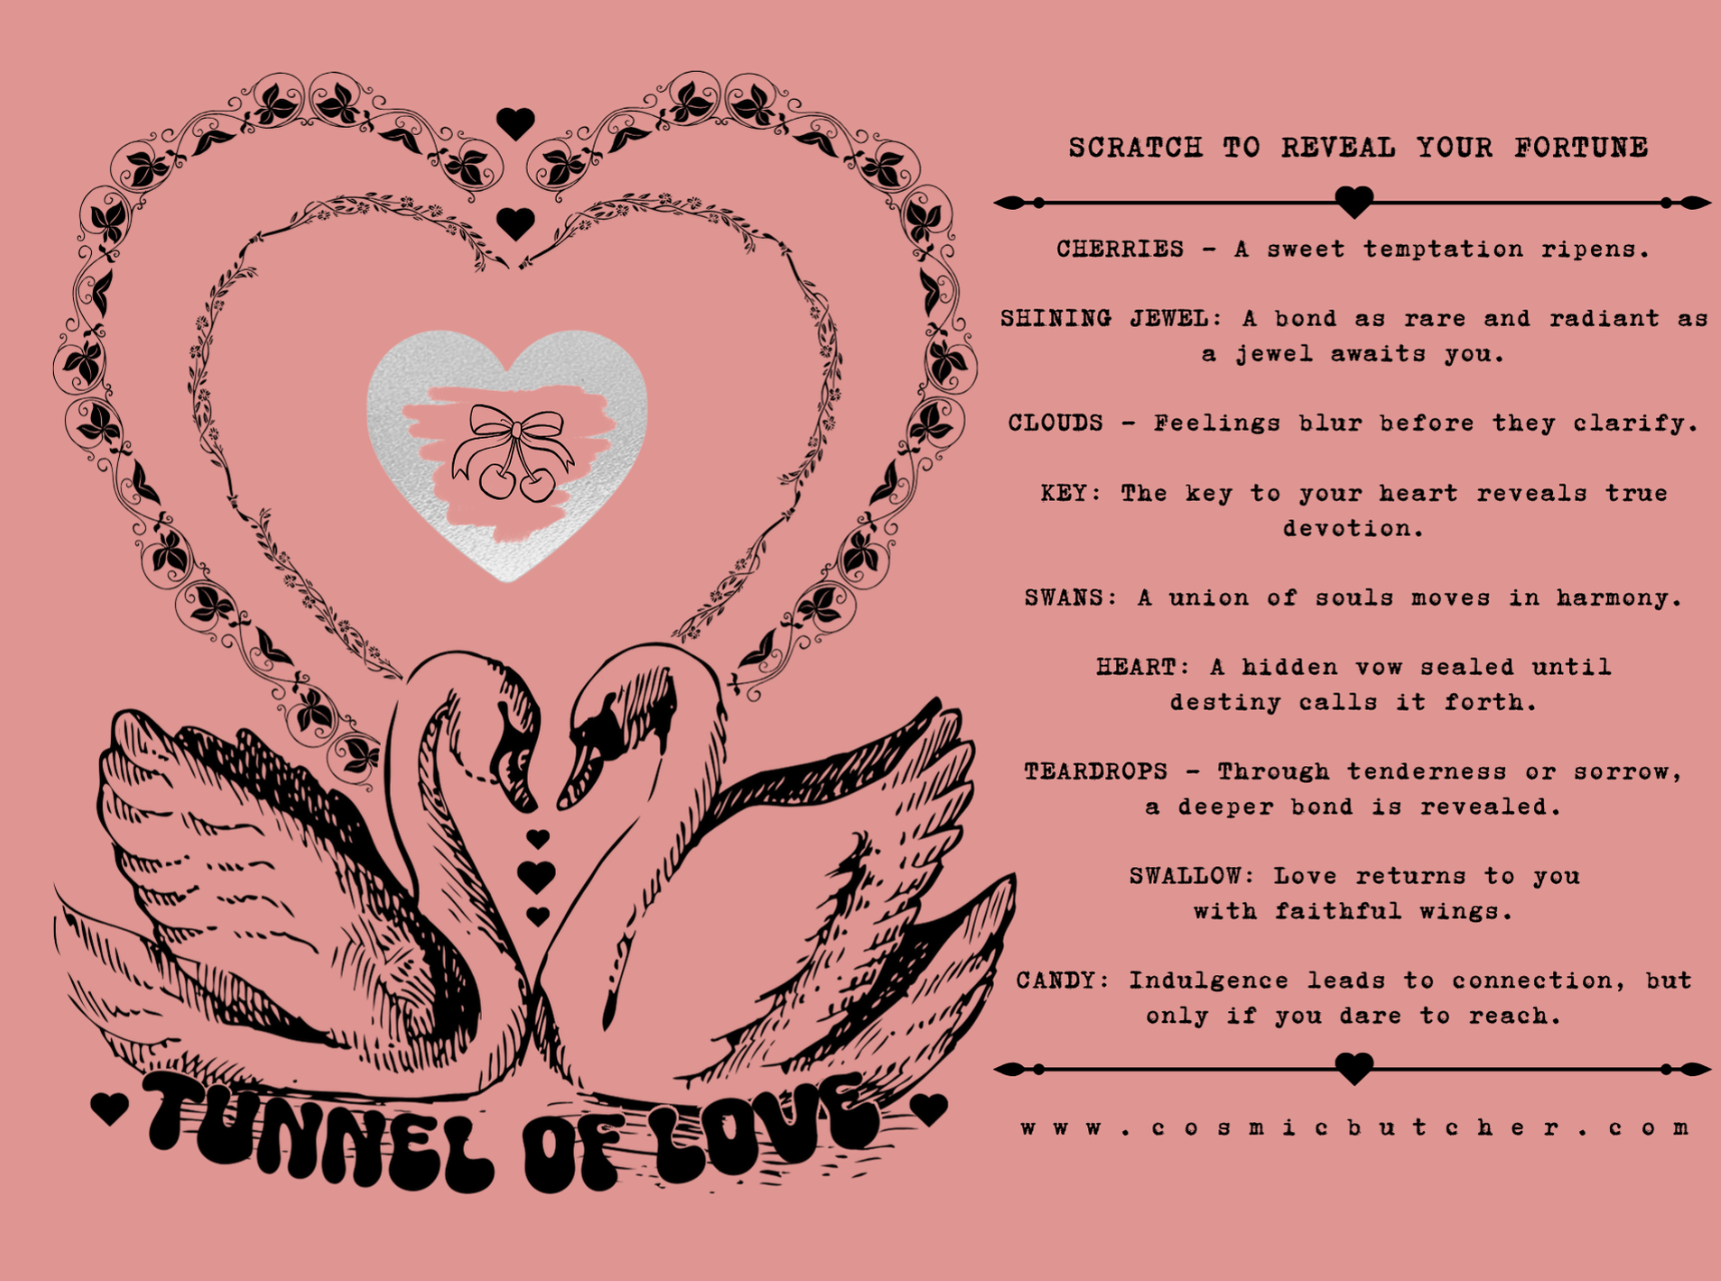 SCRATCH TO REVEAL YOUR FORTUNE
CHERRIES - A sweet temptation ripens.
SHINING JEWEL: A bond as rare and radiant as
a jewel awaits you.
CLOUDS - Feelings blur before they clarify.
KEY: The key to your heart reveals true
devotion.
SWANS: A union of souls moves in harmony.
HEART: A hidden vow sealed until
destiny calls it forth.
TEARDROPS - Through tenderness or sorrow,
a deeper bond is revealed.
SWALLOW: Love returns to you
with faithful wings.
CANDY: Indulgence leads to connection, but
only if you dare to reach.
www.cosmicbutcher.com
TUNNEL OF LOVE